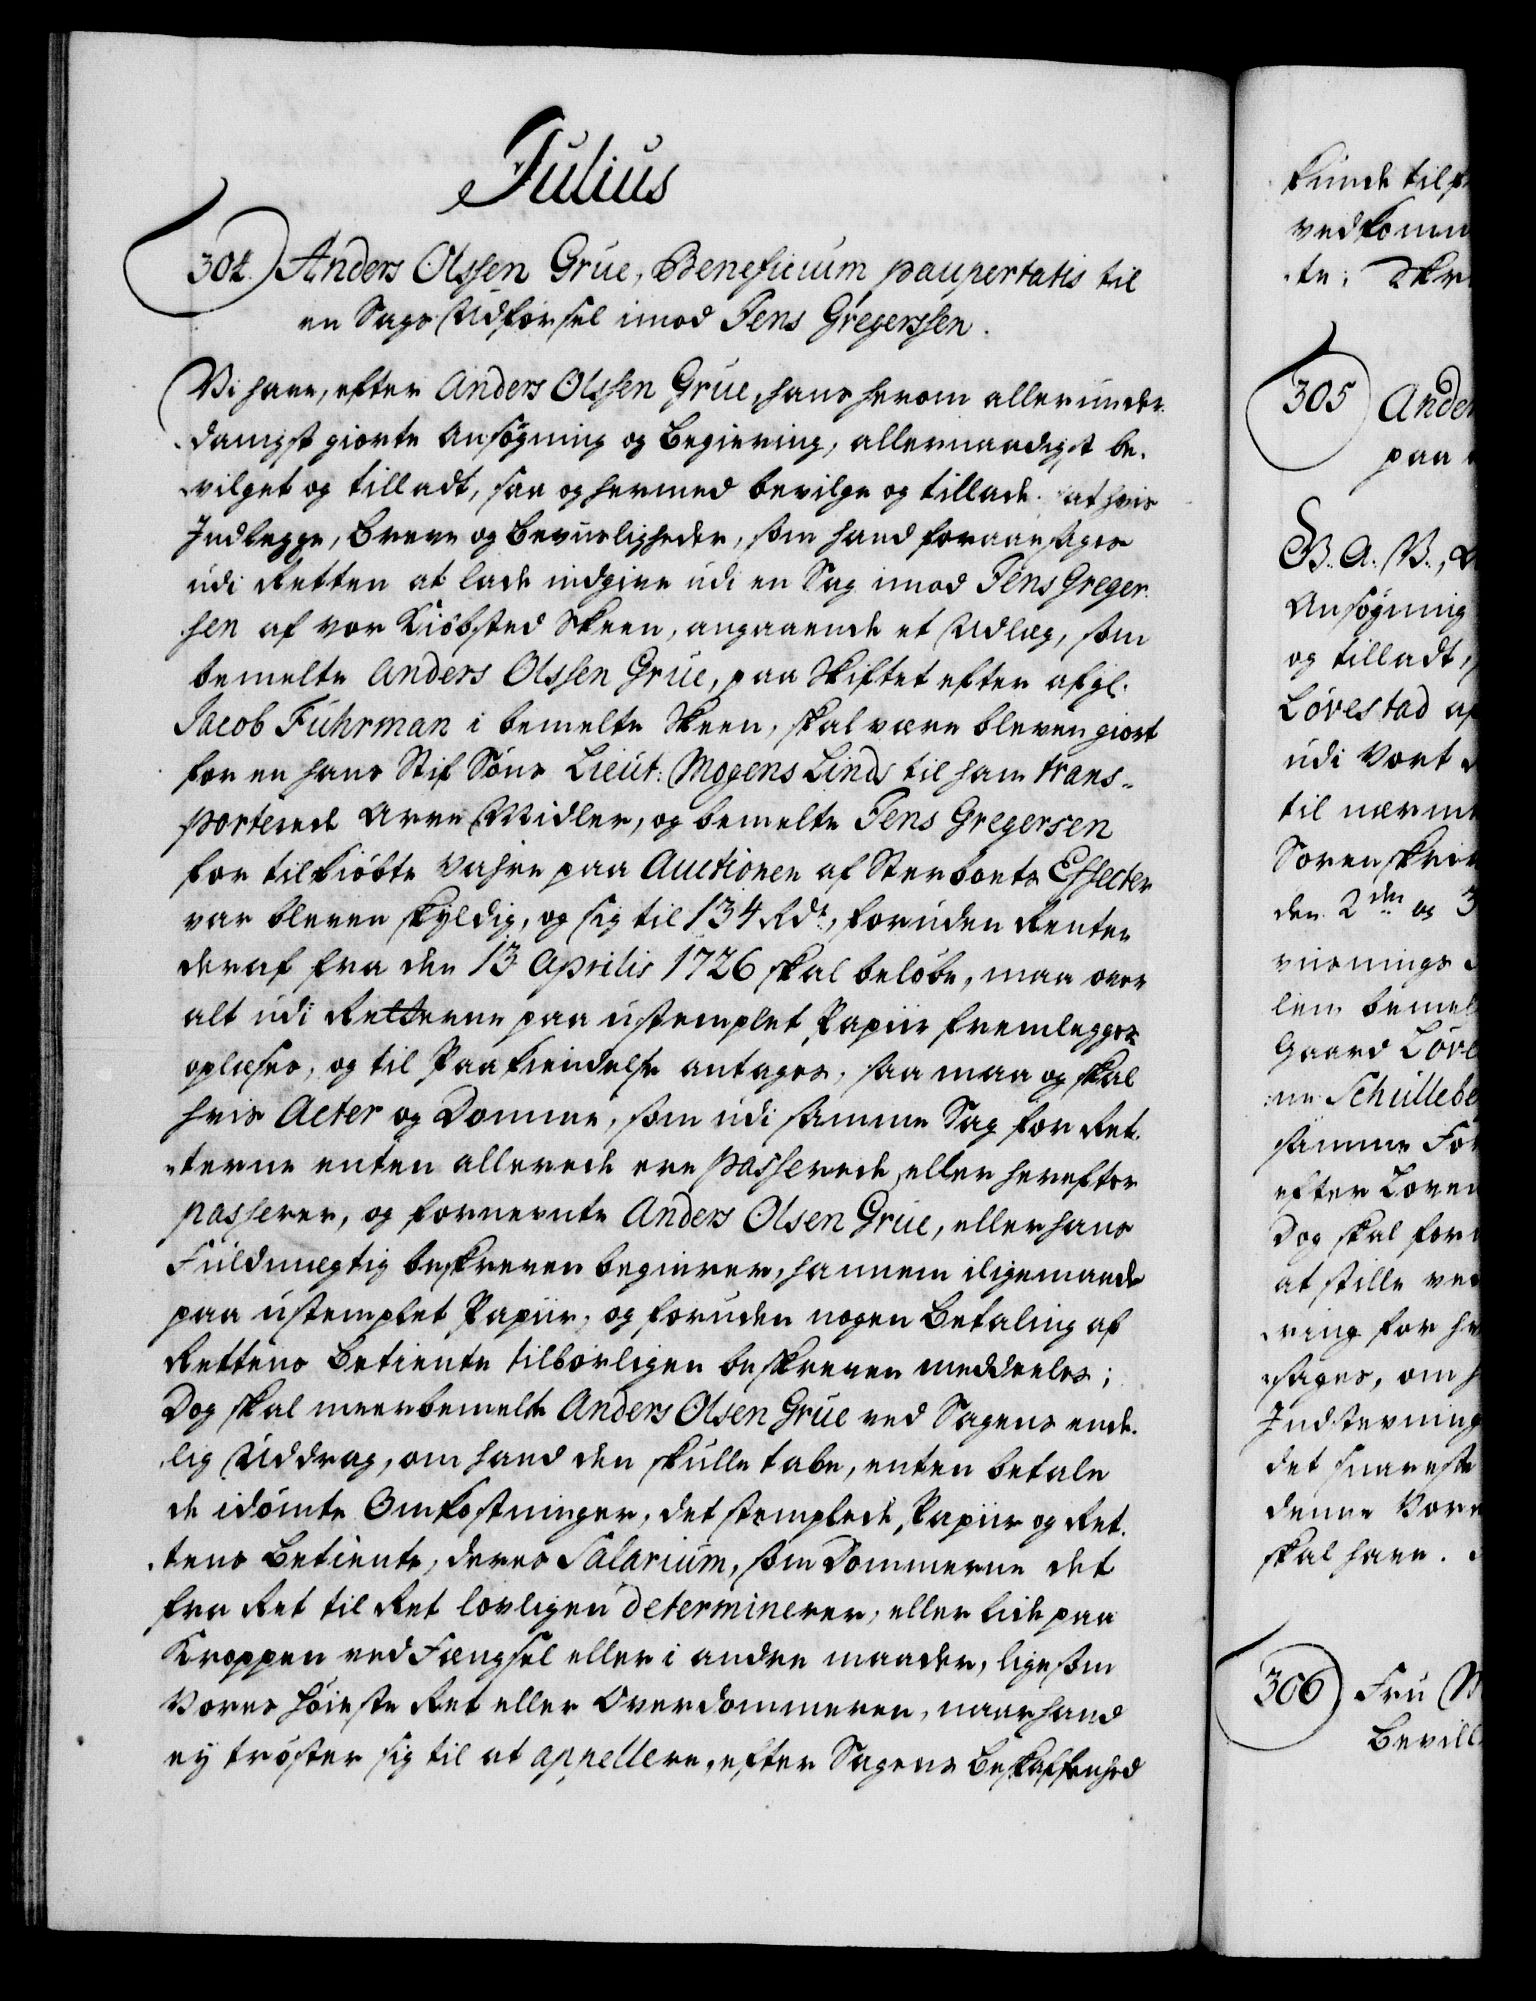 Julius
304. Anders Olssen Grue, Beneficium paupertatis til
en Sags Udførsel imod Jens Gregerssen.
Vi have, efter Anders Olssen Grue, hans herom allerunder-
danigst giorte Ansøgning og Begiering, allernaadigst be-
vilget og tilladt, saa og hermed bevilge og tillade, at hvis
Indlegge, Breve og Beviisligheder, som hand foraarsages
udi Retten at lade indgive udi en Sag imod Jens Greger-
sen af vor Kiøbsted Skeen, angaaende et Udlæg, som
bemelte Anders Olssen Grue, paa Skiftet efter afgl.
Jacob Fuhrman i bemelte Skeen, skal være bleven giort
for en hans Stif Søns Lieut: Mogens Linds til ham trans-
porterede Arve Midler, og bemelte Jens Gregersen
for tilkiøbte Vahre paa Auctionen af Sterboets Effecter
var bleven skyldig, og sig til 134 Rdr, foruden Renter
deraf fra den 13 Aprilis 1726 skal beløbe, maa over
alt udi Retterne paa ustemplet Papiir fremlegges
oplæses, og til Paakiendelse antages, saa maa og skal
hvis Acter og Domme, som udi samme Sag for Ret-
terne enten allerede ere passerede, eller herefter
passerer, og fornevnte Anders Olsen Grue, eller hans
Fuldmægtig beskreven begierer, hannem iligemaade
paa ustemplet Papiir, og foruden nogen Betaling af
Rettens Betiente tilbørligen beskreven meddeeles;
Dog skal meerbemelte Anders Olsen Grue ved Sagens ende-
lig Uddrag, om hand den skulle tabe, enten betale
de idømte Omkostninger, det stemplede Papiir og Ret-
tens Betiente, deres Salarium, som Dommerne det
fra Ret til Ret lovligen determinerer, eller lide paa
Kroppen ved Fængsel eller i andre maader, ligesom
Vores Høieste Ret eller Overdommeren, naar hand
ey trøster sig til at appellere, efter Sagens Beskaffenhed
kunde til
vedkomm
te; Skr
305 Ander
paa
S. B. A. V.,
Ansøgning
og tilladt,
Løvestad af
udi Vort
til nærme
Sorenskri
den 2den og 3
viisnings
len bemel
Gaard Løve
ne Schullebe
samme For
efter Loven
Dog skal for
at stille ved
ring for h
sages, om h
Indstevning
det snareste
denne Vore
skal have.
306 Fru M
Bevill